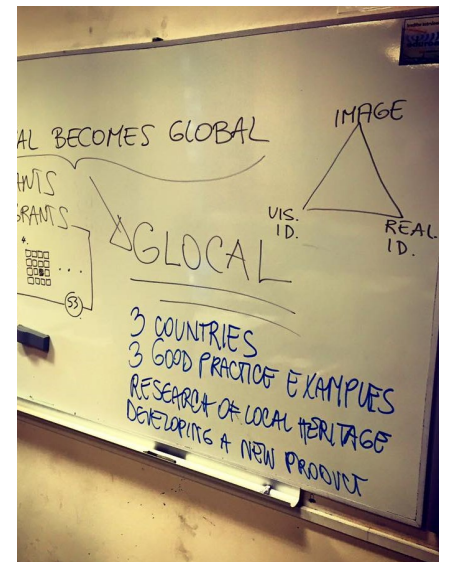 AL BECOMES GLOBAL
ANTS
GRANTS
53
GLOCAL
IMAGE
VIS. ID.
REAL ID.
3 COUNTRIES
3 GOOD PRACTICE EXAMPLES
RESEARCH OF LOCAL HERITAGE
DEVELOPING A NEW PRODUCT